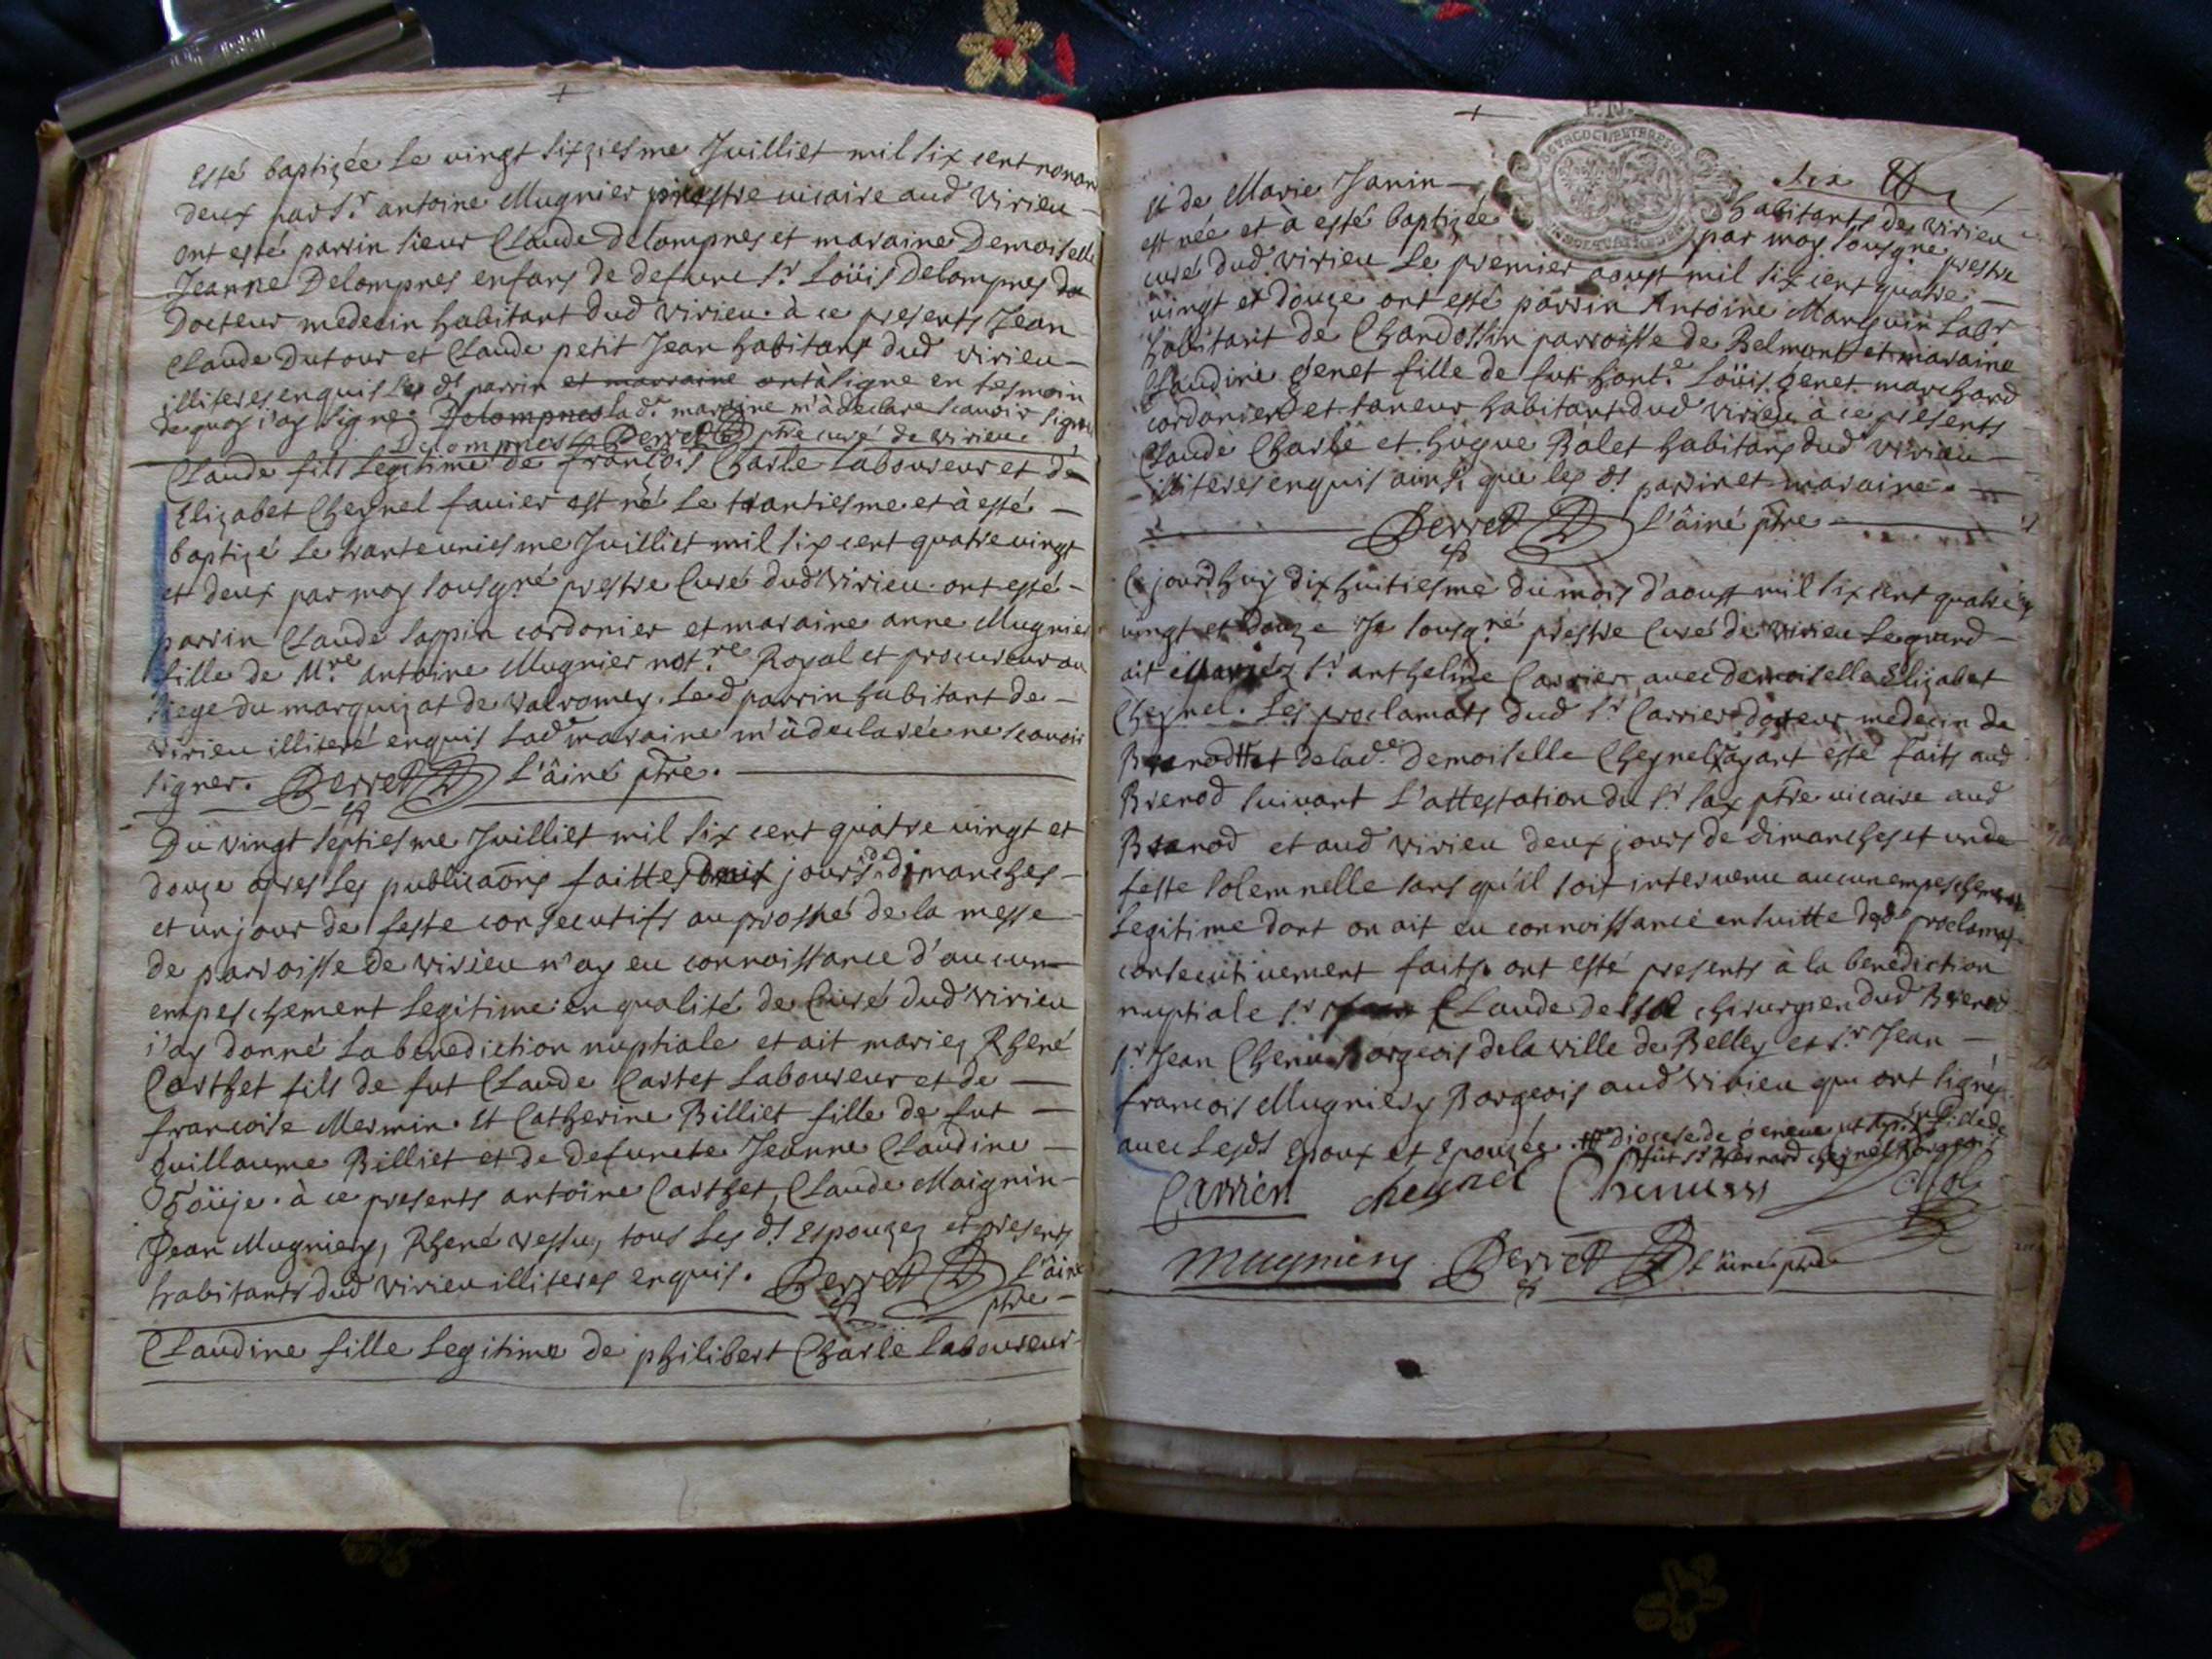 esté baptizée le vingt sixziesme Juilliet mil six cent nonan
deux par Sr. antoine Mugnier prestre vicaire aud virieu
ont esté parrin sieur Claude delompnes et maraine Demoiselle
Jeanne Delompnes enfans de defunt sr Loüis Delompnes
Docteur medecin habitant dud virieu. à ce presents Jean
Claude Dutour et Claude petit Jean habitans dud virieu
illiteres enquis les ds parrin et marraine ont à signe en tesmoin
de quoy j'ay signe. Delompnes lad. maraine m'à declare scavoir signer
Delompnes Perret ptre curé de virieu.
Claude fils legitime de françois Charle laboureur et de
Elizabet Cheynel favier est né le trantiesme et à esté
baptizé le tranteuniesme Juilliet mil six cent quatre vingt
et deux par moy sousgné prestre Curé dud virieu ont esté
parrin Claude sappin cordonier et maraine anne Mugnier
fille de Mre antoine Mugnier notre Royal et procureur au
siege du marquizat de valromey. led parrin habitant de
virieu illiteré enquis lad maraine m'à declarée ne scavoir
signer. Perret l'âiné ptre.
Du vingt septiesme Juilliet mil six cent quatre vingt et
douze apres les publicaõns faittes jours dimanches
et un jour de feste consecutifs au prosne de la messe
de parroisse de virieu n'ay eu connoissance d'aucun
empeschement legitime en qualité de Curé dud virieu
j'ay donné la benediction nuptiale et ait mariez Rhené
Carthet fils de fut Claude Cartet laboureur et de
francoise Mermin. Et Catherine Billiet fille de fut
guillaume Billiet et de defuncte Jeanne Claudine
Goüje. à ce presents antoine Carthet, Claude Maignin
Jean Mugniery, Rhené vessu, tous les ds Espouzez et presents
habitants dud virieu illiteres enquis. Perret l'âiné
ptre
Claudine fille legitime de philibert Charle laboureur
six
et de Marie Janin habitants de virieu
est née et à esté baptizée par moy sousgne prestre
curé dud virieu le premier aoust mil six cent quatre
vingt et douze ont esté parrin Antoine Marguin labr
habitant de Chandossin parroisse de Belmont et maraine
Claudine genet fille de fut hont.e Loüis genet marchand
cordonier et taneur habitant dud virieu à ce presents
Claude Charle et hugue Balet habitans dud virieu
illiteres enquis ainsi que les ds parrin et maraine.
Perret l'âiné ptre
Ce jourdhuy dix huitiesme du mois d'aoust mil six cent quatre
vingt et douze Je sousgné prestre Curé de virieu le grand
ait Mariéz sr anthelme Carrier avec demoiselle Elizabet
Cheynel. Les proclamats dud sr Carrier docteur medecin de
Brenod et de lad.e Demoiselle Cheynel ayant esté faits aud
Brenod suivant l'attestation du sr lax ptre vicaire aud
Brenod et aud virieu deux jours de dimanches et un de
feste solemnelle sans qu'il soit intervenu aucun empeschement
legitime dont on ait eu connoissance ensuitte desd proclamat
consecutivement faits ont esté presents à la benediction
nuptiale sr Claude chirurgien dud Brenod
sr Jean Chenu Borgeois de la ville de Belley et sr Jean
francois Mugniery Borgeois aud virieu qui ont signés
avec lesds Epoux et Epouzée. diocese de geneve fille de
fut sr Bernard cheynel Borgeois
Carrier cheynel Chenu
mugniery Perret l'ainé ptre